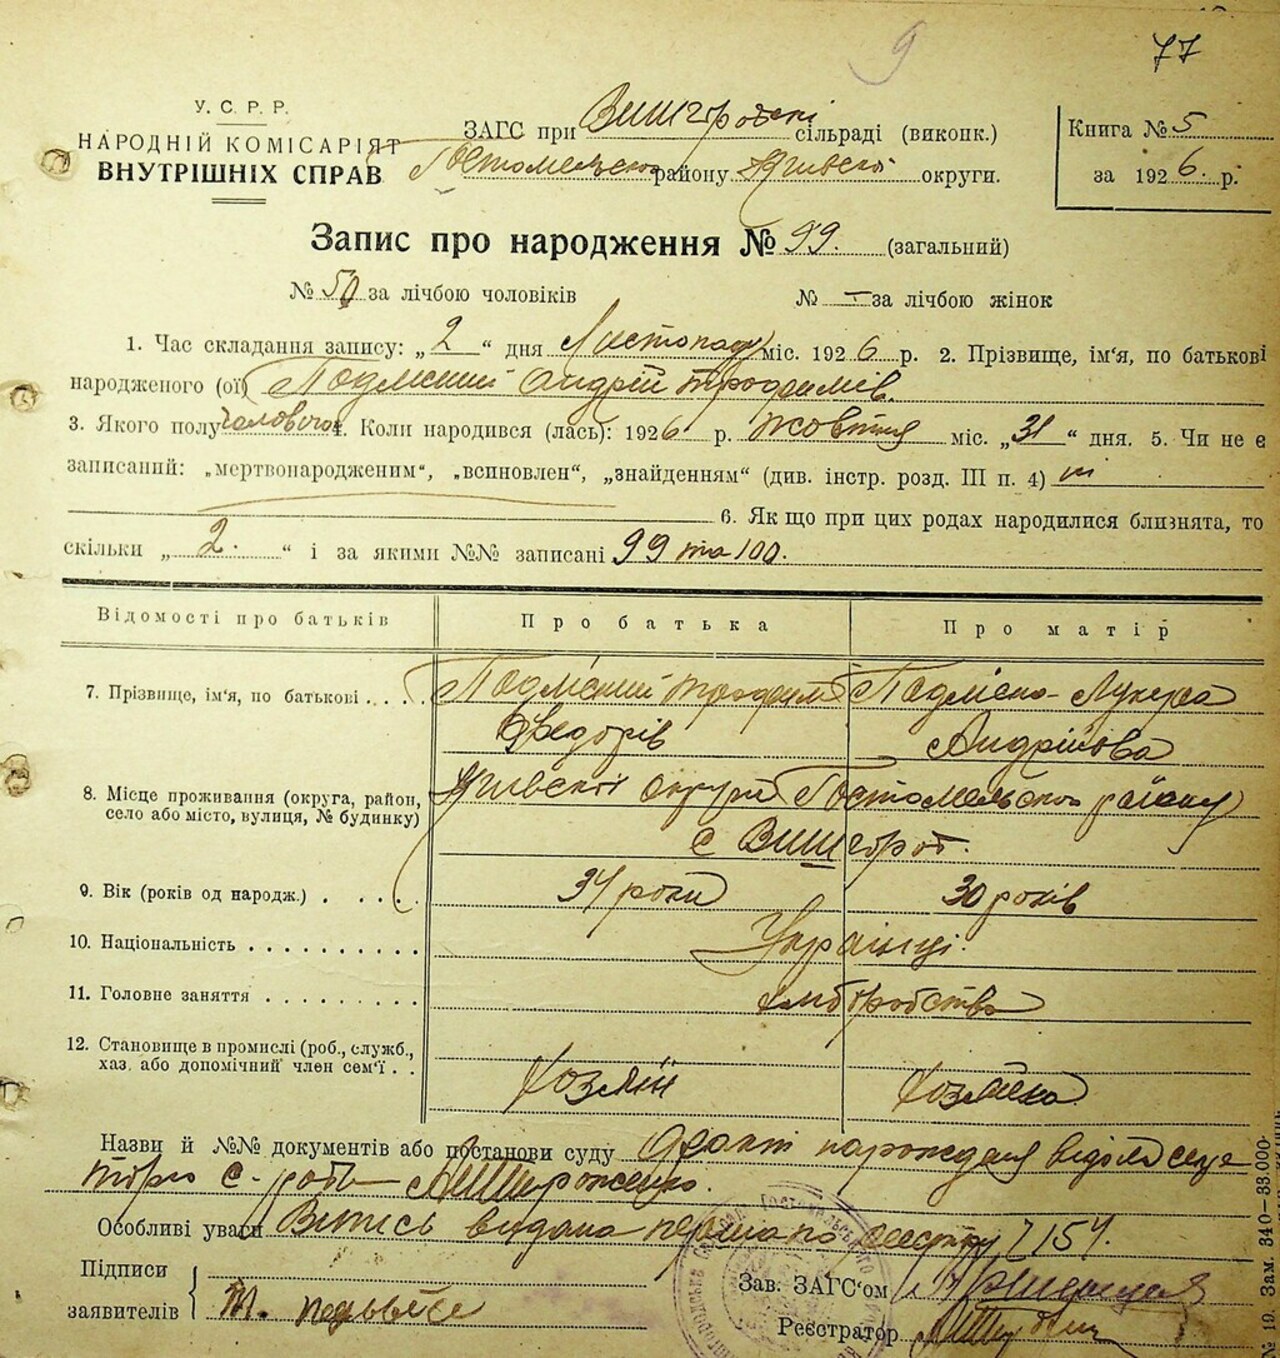 9
77
У. С. Р. Р.
НАРОДНІЙ КОМІСАРІЯТ
ВНУТРІШНІХ СПРАВ
ЗАГС при Вишгородскі сільраді (виконк.)
Гостомельско району Київскої округи.
Книга № 5
за 1926 р.
Запис про народження № 99. (загальний)
№ 50 за лічбою чоловіків
№ — за лічбою жінок
1. Час складання запису: „2“ дня Листопаду міс. 1926 р. 2. Прізвище, ім'я, по батькові
народженого (ої) Андрій Трохимів.
3. Якого полу чоловічог 4. Коли народився (лась): 1926 р. Жовтня міс. „31“ дня. 5. Чи не є
записаний: „мертвонародженим“, „всиновлен“, „знайденням“ (див. інстр. розд. III п. 4) ні
6. Як що при цих родах народилися близнята, то
скільки „2.“ і за якими №№ записані 99 та 100.
Відомості про батьків
Про батька
Про матір
7. Прізвище, ім'я, по батькові . . . .
Федорів
Лукера
Андрійова
8. Місце проживання (округа, район,
село або місто, вулиця, № будинку)
Київскої округи Гостомельского району
с Вишгород.
9. Вік (років од народж.) . . . . .
34 роки
30 років
10. Національність . . . . . . . . . .
Українці.
11. Головне заняття . . . . . . . . .
хліборобство
12. Становище в промислі (роб., служб.,
хаз. або допомічний член сем'ї . .
Хозяїн
Хозяйка
Назви й №№ документів або постанови суду
Особливі уваги Випись видана перша по реєстру 7154.
Підписи
заявителів
Т.
Зав. ЗАГС'ом
Реєстратор
№ 19. Зам. 340—33.000